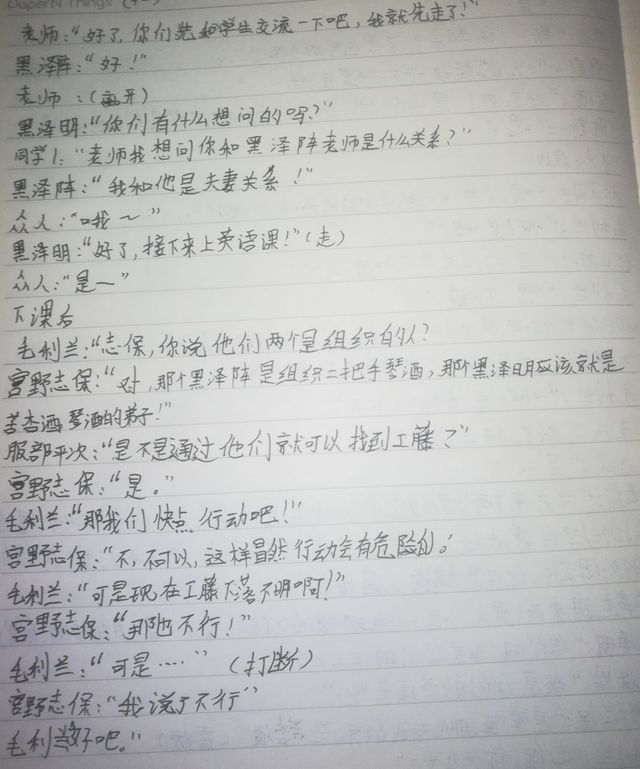 PaperN Things
老师:“好了,你们先和学生交流一下吧,我就先走了!”
黑泽阵:“好!”
老师:(离开)
黑泽明:“你们有什么想问的吗?”
同学1:“老师我想问你和黑泽阵老师是什么关系?”
黑泽阵:“我和他是夫妻关系!”
众人:“哦~”
黑泽明:“好了,接下来上英语课!”(走)
众人:“是—”
下课后
毛利兰:“志保,你说他们两个是组织的人?
宫野志保:“对,那个黑泽阵是组织二把手琴酒,那个黑泽明应该就是
苦杏酒,琴酒的弟子!”
服部平次:“是不是通过他们就可以找到工藤?”
宫野志保:“是。”
毛利兰:“那我们快点行动吧!”
宫野志保:“不,不可以,这样冒然行动会有危险的!
毛利兰:“可是现在工藤下落不明啊!”
宫野志保:“那也不行!”
毛利兰:“可是····”(打断)
宫野志保:“我说了不行”
毛利兰:好吧。”